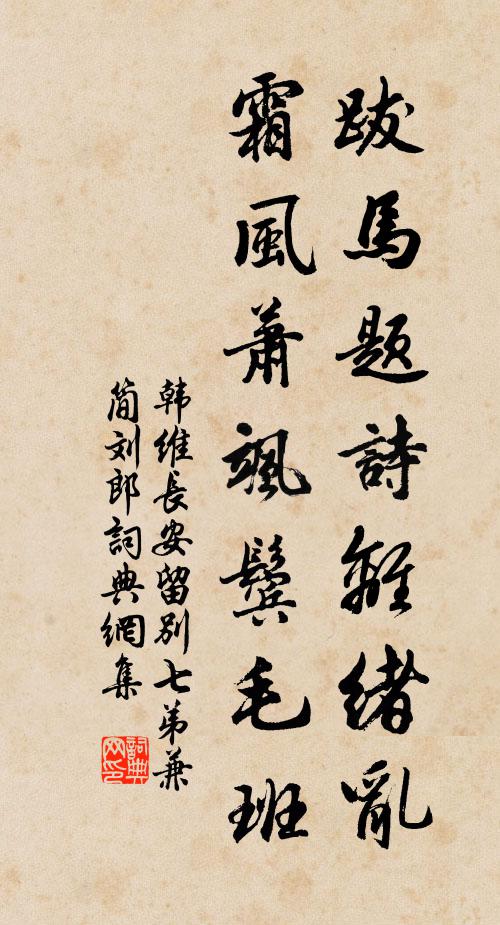 跋馬題詩離緒亂
霜風蕭颯鬓毛班
韩维長安留别七弟兼
简刘郎詞典網集
詞典网印